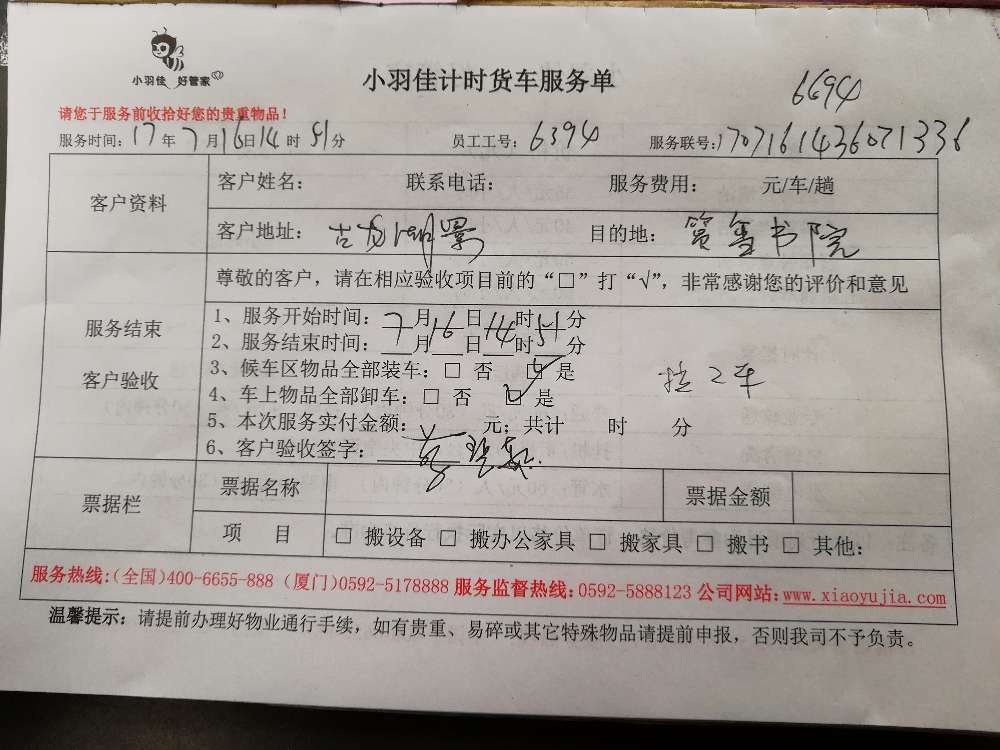 小羽佳 好管家
小羽佳计时货车服务单
6694
请您于服务前收拾好您的贵重物品！
服务时间：17年7月16日14时51分 员工工号：6394 服务联号：170716143607 1336
客户资料
客户姓名： 联系电话： 服务费用： 元/车/趟
客户地址：古龙湖景 目的地：簧鱼书院
尊敬的客户，请在相应验收项目前的“□”打“√”，非常感谢您的评价和意见
服务结束
客户验收
1、服务开始时间：7月16日14时51分
2、服务结束时间：___月___日___时___分
3、候车区物品全部装车：□ 否 □ 是
4、车上物品全部卸车：□ 否 □ 是
2车
5、本次服务实付金额： 元；共计 时 分
6、客户验收签字：
票据栏
票据名称 票据金额
项 目 □ 搬设备 □ 搬办公家具 □ 搬家具 □ 搬书 □ 其他：
服务热线：(全国)400-6655-888 (厦门)0592-5178888 服务监督热线：0592-5888123 公司网站：www.xiaoyujia.com
温馨提示：请提前办理好物业通行手续，如有贵重、易碎或其它特殊物品请提前申报，否则我司不予负责。